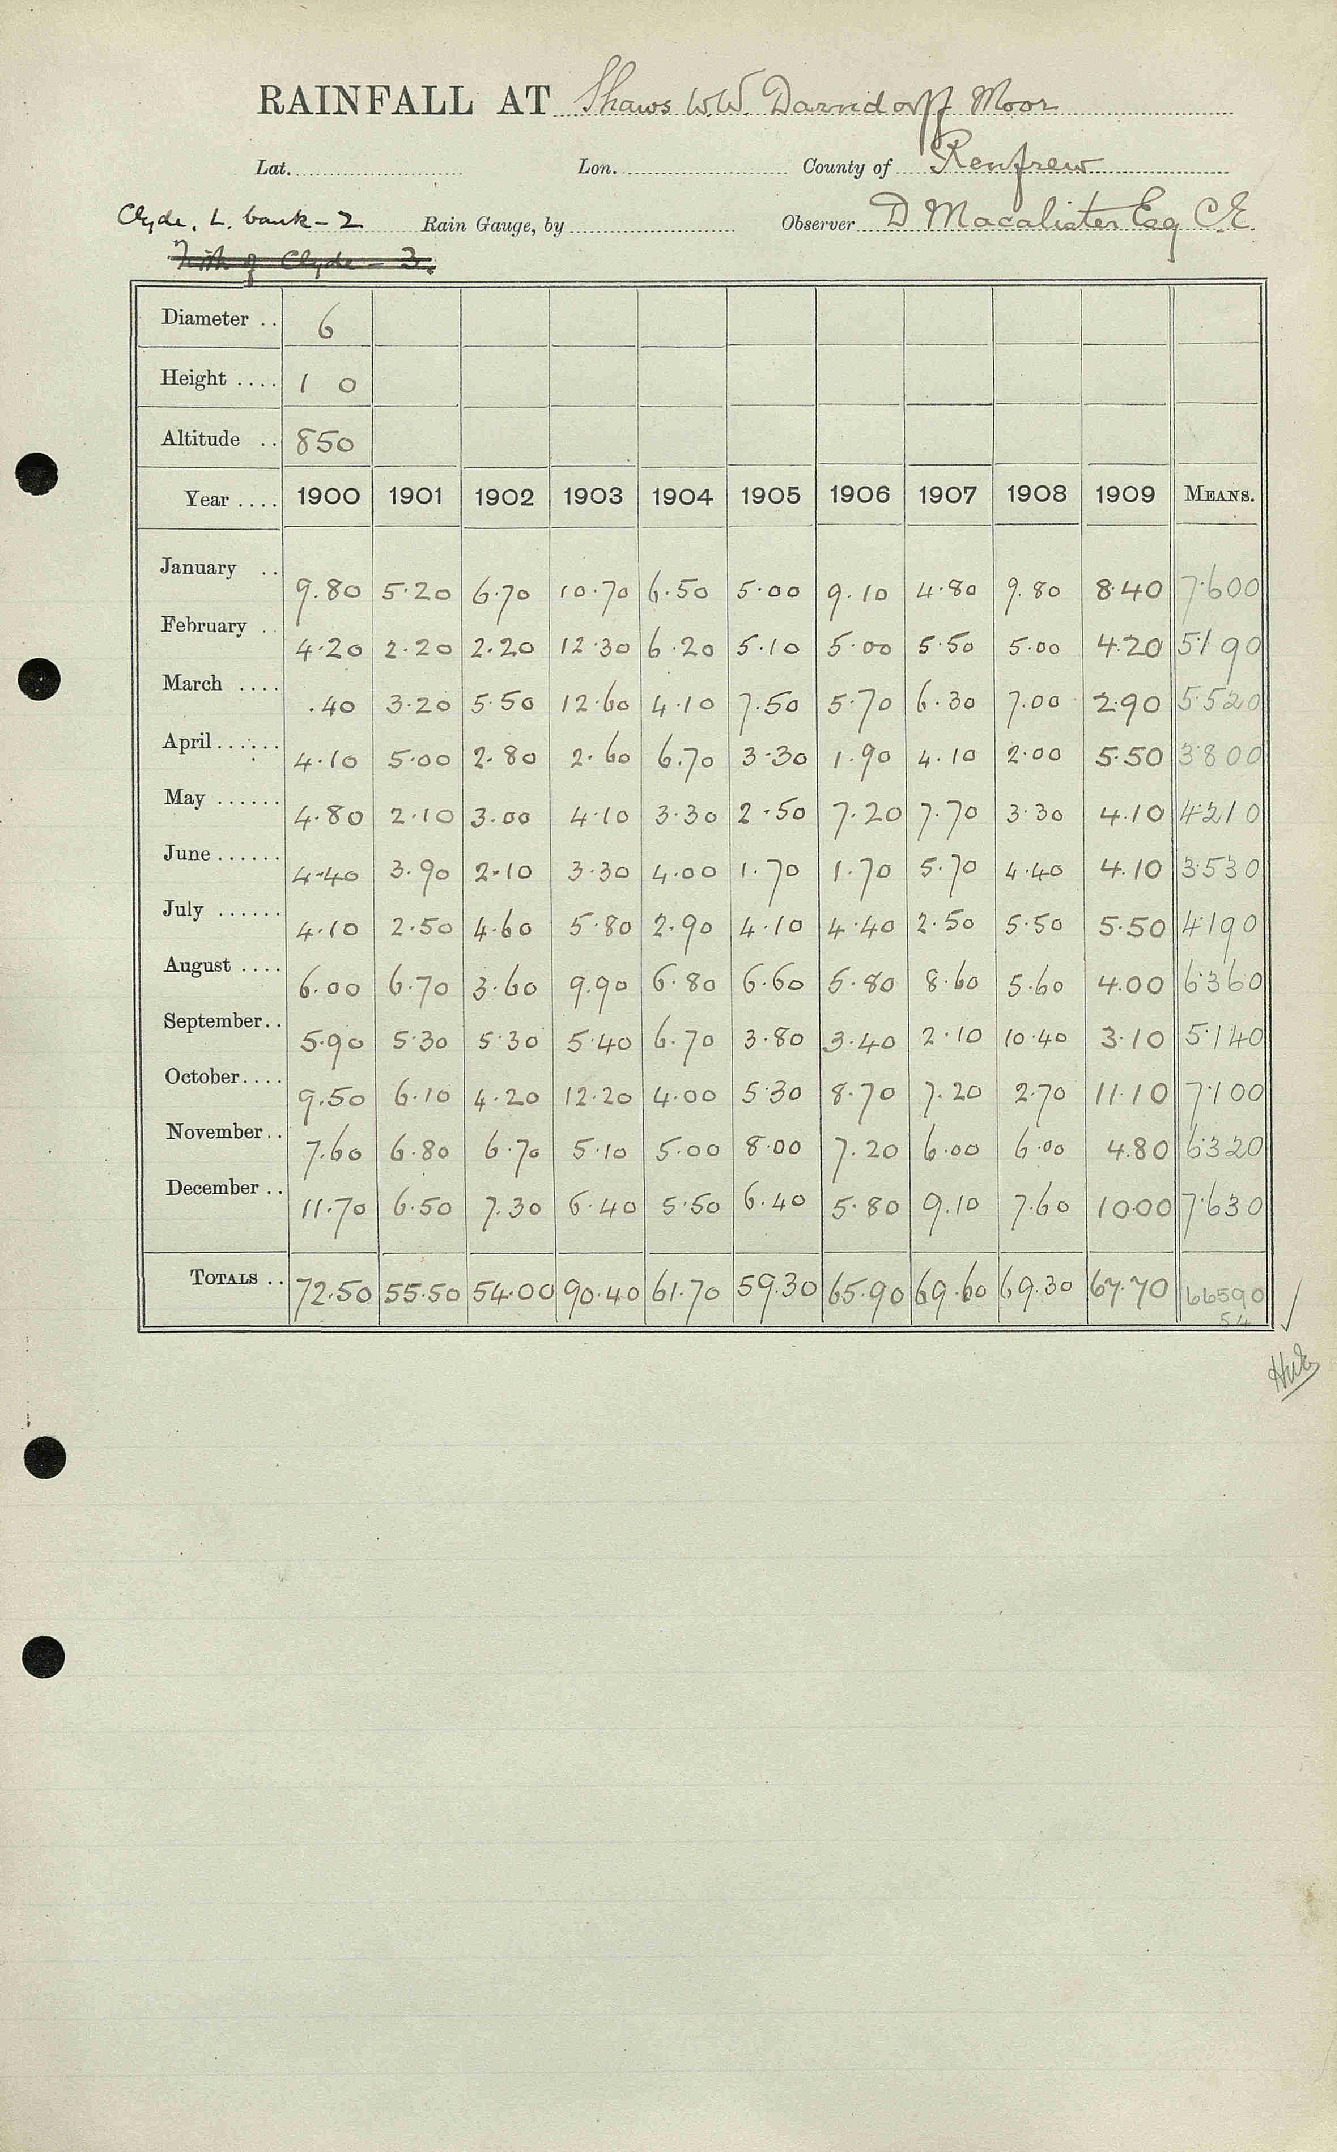 RAINFALL AT Shaws W.W. Darndorff Moor
Lat. Lon. County of Renfrew
Clyde, L. bank - 2 Rain Gauge, by Observer D Macalister Esq C.E.
Firth of Clyde - 3.
Diameter .. 6
Height .... 1 0
Altitude .. 850
Year .... 1900 1901 1902 1903 1904 1905 1906 1907 1908 1909 MEANS.
January .. 9.80 5.20 6.70 10.70 6.50 5.00 9.10 4.80 9.80 8.40 7.600
February .. 4.20 2.20 2.20 12.30 6.20 5.10 5.00 5.50 5.00 4.20 5.190
March .... .40 3.20 5.50 12.60 4.10 7.50 5.70 6.30 7.00 2.90 5.520
April...... 4.10 5.00 2.80 2.60 6.70 3.30 1.90 4.10 2.00 5.50 3.800
May ...... 4.80 2.10 3.00 4.10 3.30 2.50 7.20 7.70 3.30 4.10 4.210
June...... 4.40 3.90 2.10 3.30 4.00 1.70 1.70 5.70 4.40 4.10 3.530
July ...... 4.10 2.50 4.60 5.80 2.90 4.10 4.40 2.50 5.50 5.50 4.190
August .... 6.00 6.70 3.60 9.90 6.80 6.60 5.80 8.60 5.60 4.00 6.360
September.. 5.90 5.30 5.30 5.40 6.70 3.80 3.40 2.10 10.40 3.10 5.140
October.... 9.50 6.10 4.20 12.20 4.00 5.30 8.70 7.20 2.70 11.10 7.100
November.. 7.60 6.80 6.70 5.10 5.00 8.00 7.20 6.00 6.00 4.80 6.320
December .. 11.70 6.50 7.30 6.40 5.50 6.40 5.80 9.10 7.60 10.00 7.630
TOTALS .. 72.50 55.50 54.00 90.40 61.70 59.30 65.90 69.60 69.30 67.70 66590
54